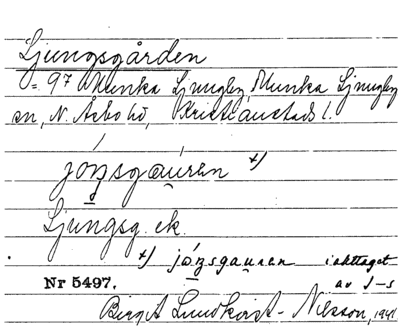 Ljungsgården
= 9⁷ Munka Ljungby, Munka Ljungby
sn, N. Åsbo hd, Kristianstads l.
jóŋsgau̯ren +)
Ljungsg. ek.
+) jóŋsgauren iakttaget
av J-s
Nr 5497.
Birgit Lundkvist-Nilsson, 1941